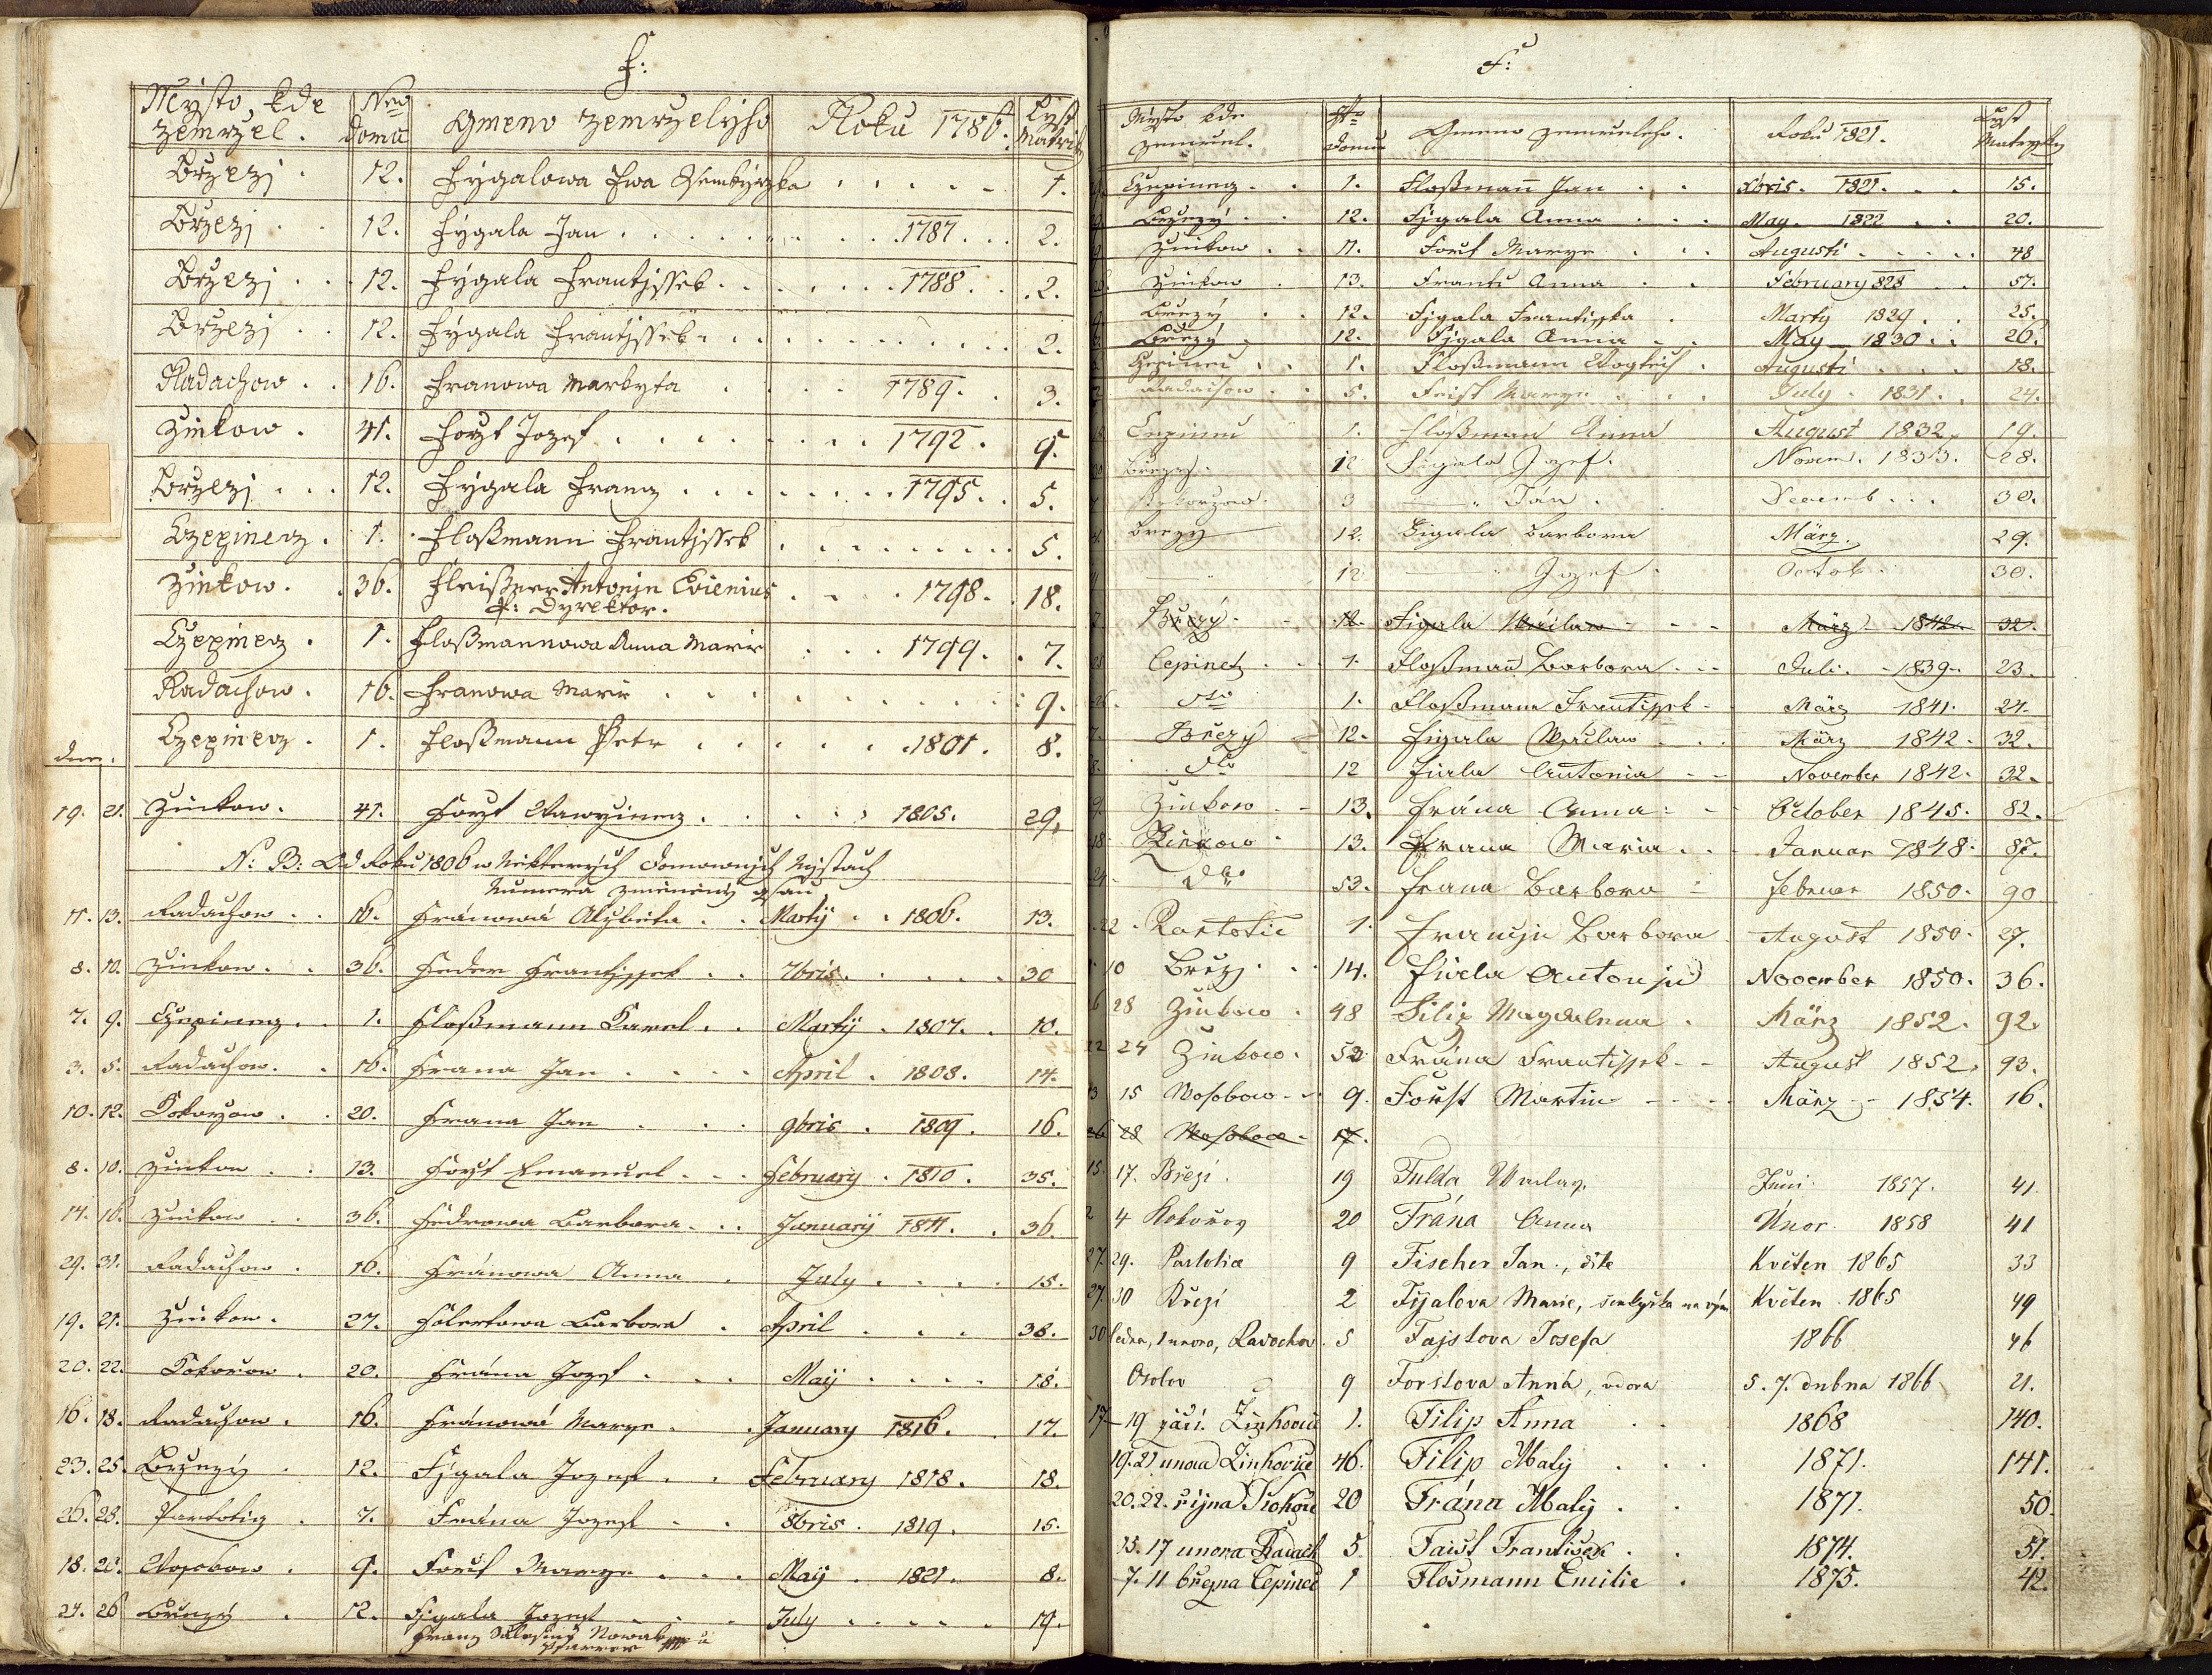 F:
Mysto, kde zemrzel. Nro domu Gmeno zemrzelyho Roku 1786. Lyst Matrik
Brzezj. 12. Fygalowa Ewa 1.
Brzezj 12. Fygala Jan 1787. 2.
Brzezj 12. Fygala Frantjssek 1788. 2.
Brzezj 12. Fygala Frantjssek 2.
Radachow 16. Franowa Markyta 1789. 3.
Zinkow. 41. Forzt Jozef 1792. 9.
Brzezj 12. Fygala Franz 1795. 5.
Czepinecz. 1. Floßmann Frantjssek 5.
Zinkow. 36. Fleißner Antonin 1798. 18.
Dyrektor.
Czepinecz. 1. Floßmannowa Anna Marie 1799. 7.
Radachow. 16. Franowa Marie 9.
Czepinecz. 1. Floßmann Petr 1801. 8.
19. 21. Zinkow. 41. Forzt Wawrzinecz 1805. 29.
N: B: Od Roku 1806 w Niekterych Domownjch Mjstach
Numera zmieniny gsau
11. 13. Radachow 16. Fránowá Alzbieta Martij 1806. 13.
8. 10. Zinkow 36. Feder Frantissek 7bris. 30
7. 9. Czepinecz 1. Floßmann Karel Martij 1807. 10.
3. 5. Radachow 16. Frana Jan April 1808. 14.
10. 12. Kokorzow 20. Frana Jan 9bris 1809. 16.
8. 10. Zinkow 13. Forzt Emanuel February 1810. 35.
14. 16. Zinkow 36. Fedrowa Barbora Januarij 1811. 36.
29. 31. Radachow 16. Fránowa Anna July 15.
19. 21. Zinkow 27. Barbora April 38.
20. 22. Kokorow 20. Frána Jozef Maij 18.
16. 18. Radachow 16. Fránowá Marye January 1816. 17.
23. 25. Brzezy 12. Fjgala Jozef February 1818. 18.
26. 28. Partotiz 7. Frána Jozef 8bris. 1819. 15.
18. 20. Wosobow 9. Forst Marye Maij 1821. 8.
24. 26 Brzezy 12. Fjgala Jozef July 19.
Franz Nowak
Pfarrer
F:
Mysto kde zemrzel. Nro Domu Gmeno zemrzeleho. Roku 1821. Lyst Matryky
Czepinecz 1. Floßmann Jan Xbris. 1821. 15.
Brzezy 12. Fjgala Anna May. 1822 20.
Zinkow 11. Forst Marye Augusti 48
Zinkow 13. Frantu Anna February 828 51.
Brzezy 12. Fjgala Frantisska Martij 1829 25.
Brzezy 12. Fjgala Anna May 1830 26.
Czepinec 1. Floßmann Wogtech Augusti 18.
Radachow 5. Feist Marye July 1831. 24.
Czepinec 1. Floßman Anna August 1832. 19.
Brzezy. 12 Figala Jozef. Novem. 1833. 28.
Kokorzow. 3 Jan. Decemb 30.
Brezy 12. Figala Barbora März. 29.
12 Jozef Octob. 30.
Březy 12. Figala Wáclaw März 1842 32.
Čepinetz 1. Floßmann Barbora Juli 1839. 23.
dto 1. Floßmann Frantissek März 1841. 24.
Březy 12. Figala Wáclaw März 1842. 32.
dto 12 Fiala Antonia November 1842. 32.
Zinkow 13. Frána Anna October 1845. 82.
Zinkow 13. Frana Maria Januar 1848. 87.
dto 53. Frana Barbora Februar 1850. 90
22. Partotic 1. Barbora August 1850. 27.
10 Brezy 14. Fiala Antonje November 1850. 36.
26 28 Zinkow 48 Filip Magdalena März 1852. 92.
22 24 Zinkow. 53 Frána Frantissek August 1852, 93.
13 15 Wosobow 9. Foršt Martin März 1854. 16.
26 28 Wosobow 17.
15. 17. Březi 19 Fulda Waclaw Juni 1857. 41
2 4 Kokořov 20 Frána Anna Únor 1858 41
27. 29. Partotice 9 Fischer Jan, dite Květen 1865 33
27. 30 Březi 2 Fijalova Marie, Květen 1865 49
30 ledna, 1 unora, Radochow 5 Fajstova Josefa 1866 46
Osobov 9 Forstova Anna, vdova 5. 7. dubna 1866 21.
17-19 září. Žinkovice 1. Filip Anna 1868 140.
19. 21 unora Žinkovice 46. Filip Matěj 1871. 141.
20. 22. října Kokoř 20 Frána Matěj 1871. 50.
15. 17 unora Radach 5 Faist František 1874. 51.
7. 11 března Čepinec 1 Flosmann Emilie 1875. 42.